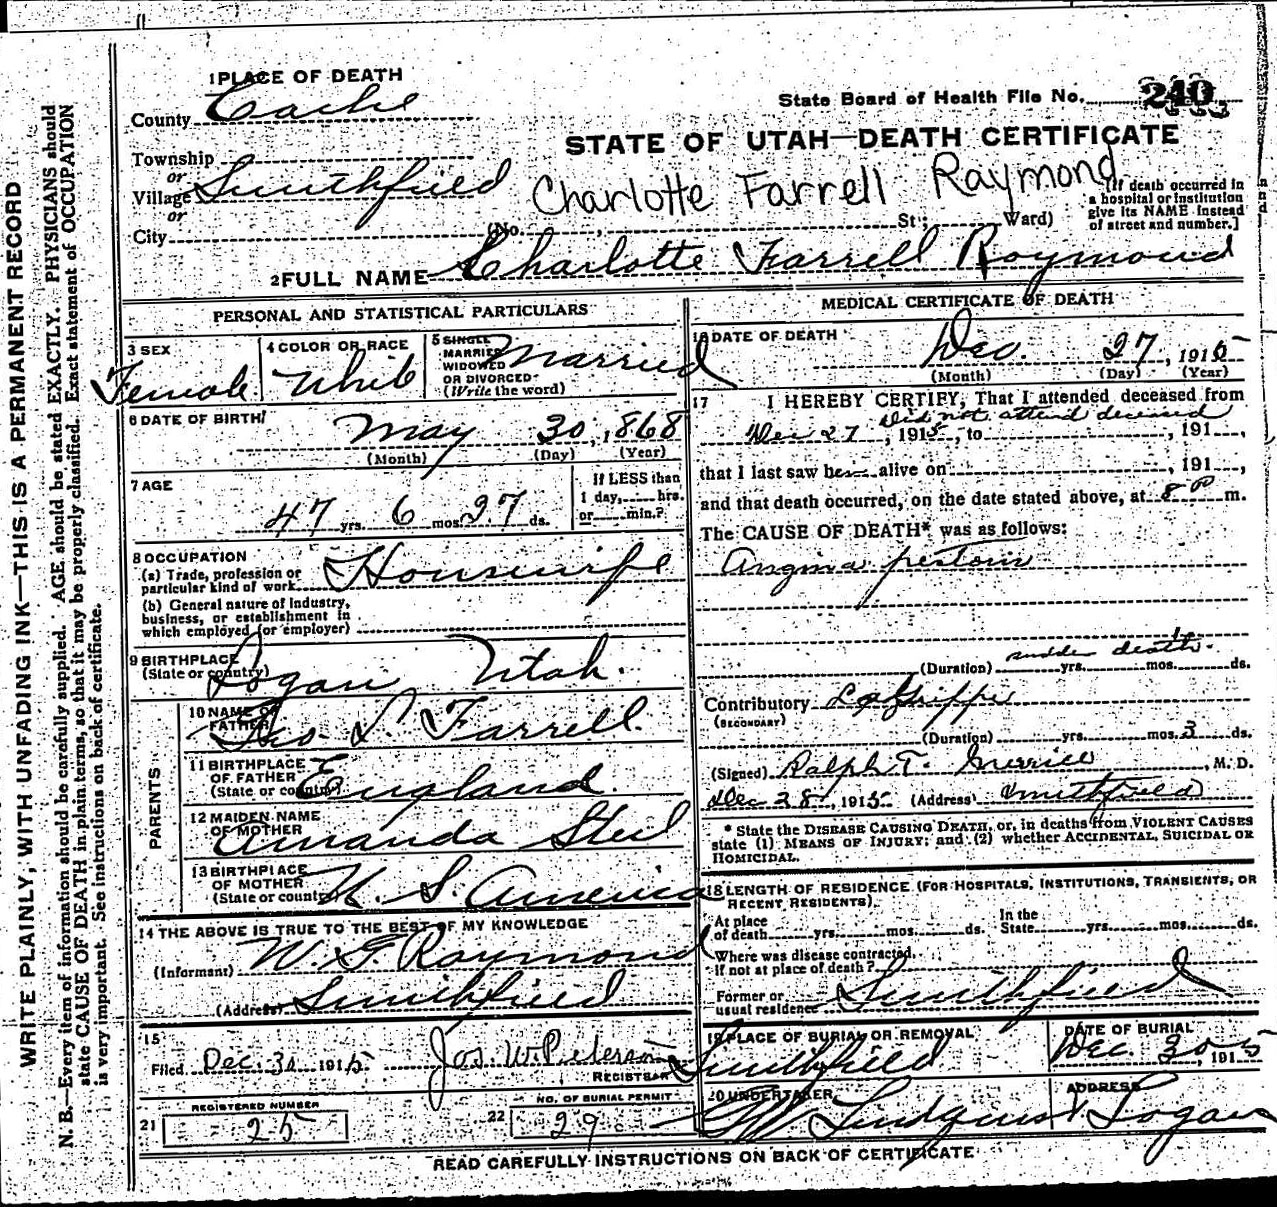 1 PLACE OF DEATH
County Cache
State Board of Health File No. 240
STATE OF UTAH—DEATH CERTIFICATE
Township
or
Village Smithfield
or
City
Charlotte Farrell Raymond
(No. , St; Ward)
[If death occurred in
a hospital or institution
give its NAME instead
of street and number.]
2 FULL NAME Charlotte Farrell Raymond
PERSONAL AND STATISTICAL PARTICULARS
3 SEX
Female
4 COLOR OR RACE
White
5 SINGLE
MARRIED
WIDOWED
OR DIVORCED
(Write the word)
Married
6 DATE OF BIRTH
May 30, 1868
(Month) (Day) (Year)
7 AGE
47 yrs. 6 mos. 27 ds.
If LESS than
1 day, hrs.
or min.?
8 OCCUPATION
(a) Trade, profession or
particular kind of work Housewife
(b) General nature of industry,
business, or establishment in
which employed (or employer)
9 BIRTHPLACE
(State or country) Logan Utah.
PARENTS
10 NAME OF
FATHER Geo. L. Farrell.
11 BIRTHPLACE
OF FATHER
(State or country) England
12 MAIDEN NAME
OF MOTHER Amanda Steel
13 BIRTHPLACE
OF MOTHER
(State or country) U. S. America
14 THE ABOVE IS TRUE TO THE BEST OF MY KNOWLEDGE
(Informant) W. G. Raymond
(Address) Smithfield
15
Filed Dec. 30 1915 Jos. W. Peterson
REGISTRAR
21 REGISTERED NUMBER
25
22 NO. OF BURIAL PERMIT
29
MEDICAL CERTIFICATE OF DEATH
16 DATE OF DEATH
Dec. 27, 1915
(Month) (Day) (Year)
17 I HEREBY CERTIFY, That I attended deceased from
Did not attend deceased
Dec 27, 1915, to , 191 ,
that I last saw her alive on , 191 ,
and that death occurred, on the date stated above, at 8 00 m.
The CAUSE OF DEATH* was as follows:
Angina pectoris
sudden death.
(Duration) yrs. mos. ds.
Contributory La Grippe
(SECONDARY)
(Duration) yrs. mos. 3 ds.
(Signed) Ralph T. Merrill, M. D.
Dec 28, 1915 (Address) Smithfield
* State the DISEASE CAUSING DEATH, or, in deaths from VIOLENT CAUSES
state (1) MEANS OF INJURY; and (2) whether ACCIDENTAL, SUICIDAL OR
HOMICIDAL.
18 LENGTH OF RESIDENCE (FOR HOSPITALS, INSTITUTIONS, TRANSIENTS, OR
RECENT RESIDENTS).
At place
of death yrs. mos. ds.
In the
State yrs. mos. ds.
Where was disease contracted,
if not at place of death?
Former or
usual residence Smithfield
19 PLACE OF BURIAL OR REMOVAL
Smithfield
DATE OF BURIAL
Dec. 30, 1915
20 UNDERTAKER
Lindquist
ADDRESS
Logan
READ CAREFULLY INSTRUCTIONS ON BACK OF CERTIFICATE
WRITE PLAINLY, WITH UNFADING INK—THIS IS A PERMANENT RECORD
N. B.—Every item of information should be carefully supplied. AGE should be stated EXACTLY. PHYSICIANS should
state CAUSE OF DEATH in plain terms, so that it may be properly classified. Exact statement of OCCUPATION
is very important. See instructions on back of certificate.